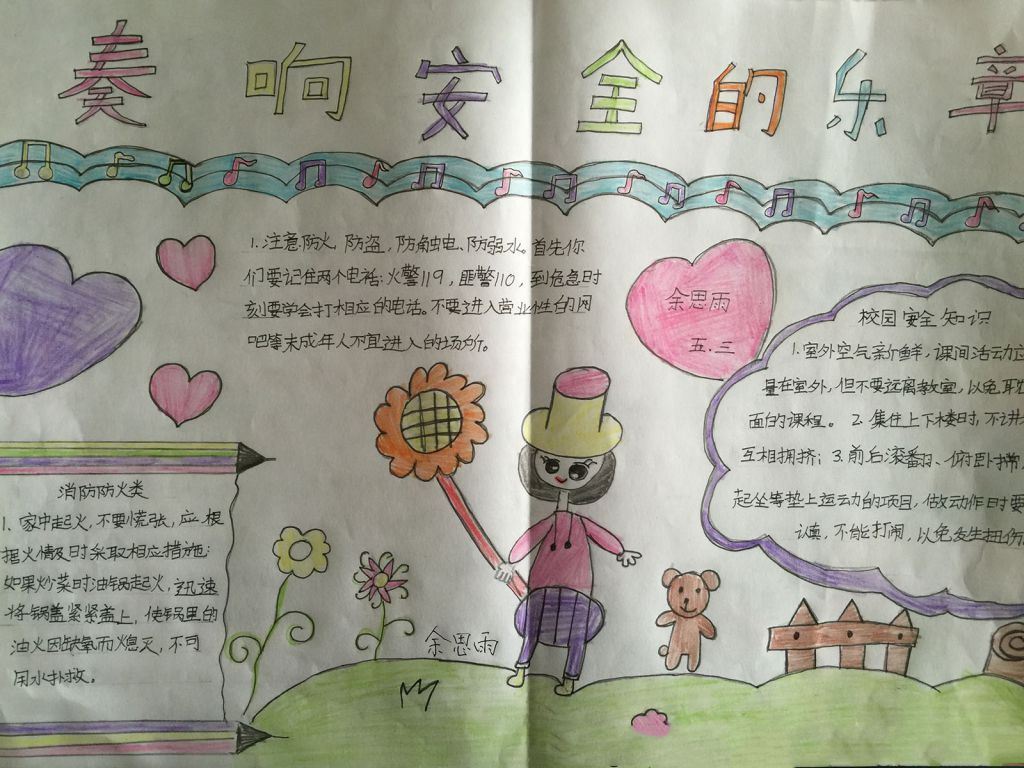 奏响安全的乐章
1.注意防火、防盗,防触电、防弱水。首先你
们要记住两个电话:火警119,匪警110,到危急时
刻要学会打相应的电话。不要进入营业性的网
吧等未成年人不宜进入的场所。
余思雨
五.三
校园安全知识
1.室外空气新鲜,课间活动应
量在室外,但不要远离教室,以免耽
面的课程。2.集住上下楼时,不讲
互相拥挤;3.前后滚翻、俯卧撑、
起坐等垫上运动的项目,做动作时要
认真,不能打闹,以免发生扭伤
消防防火类
1、家中起火,不要慌张,应根
据火情及时采取相应措施:
如果炒菜时油锅起火,迅速
将锅盖紧紧盖上,使锅里的
油火因缺氧而熄灭,不可
用水扑救。
余思雨